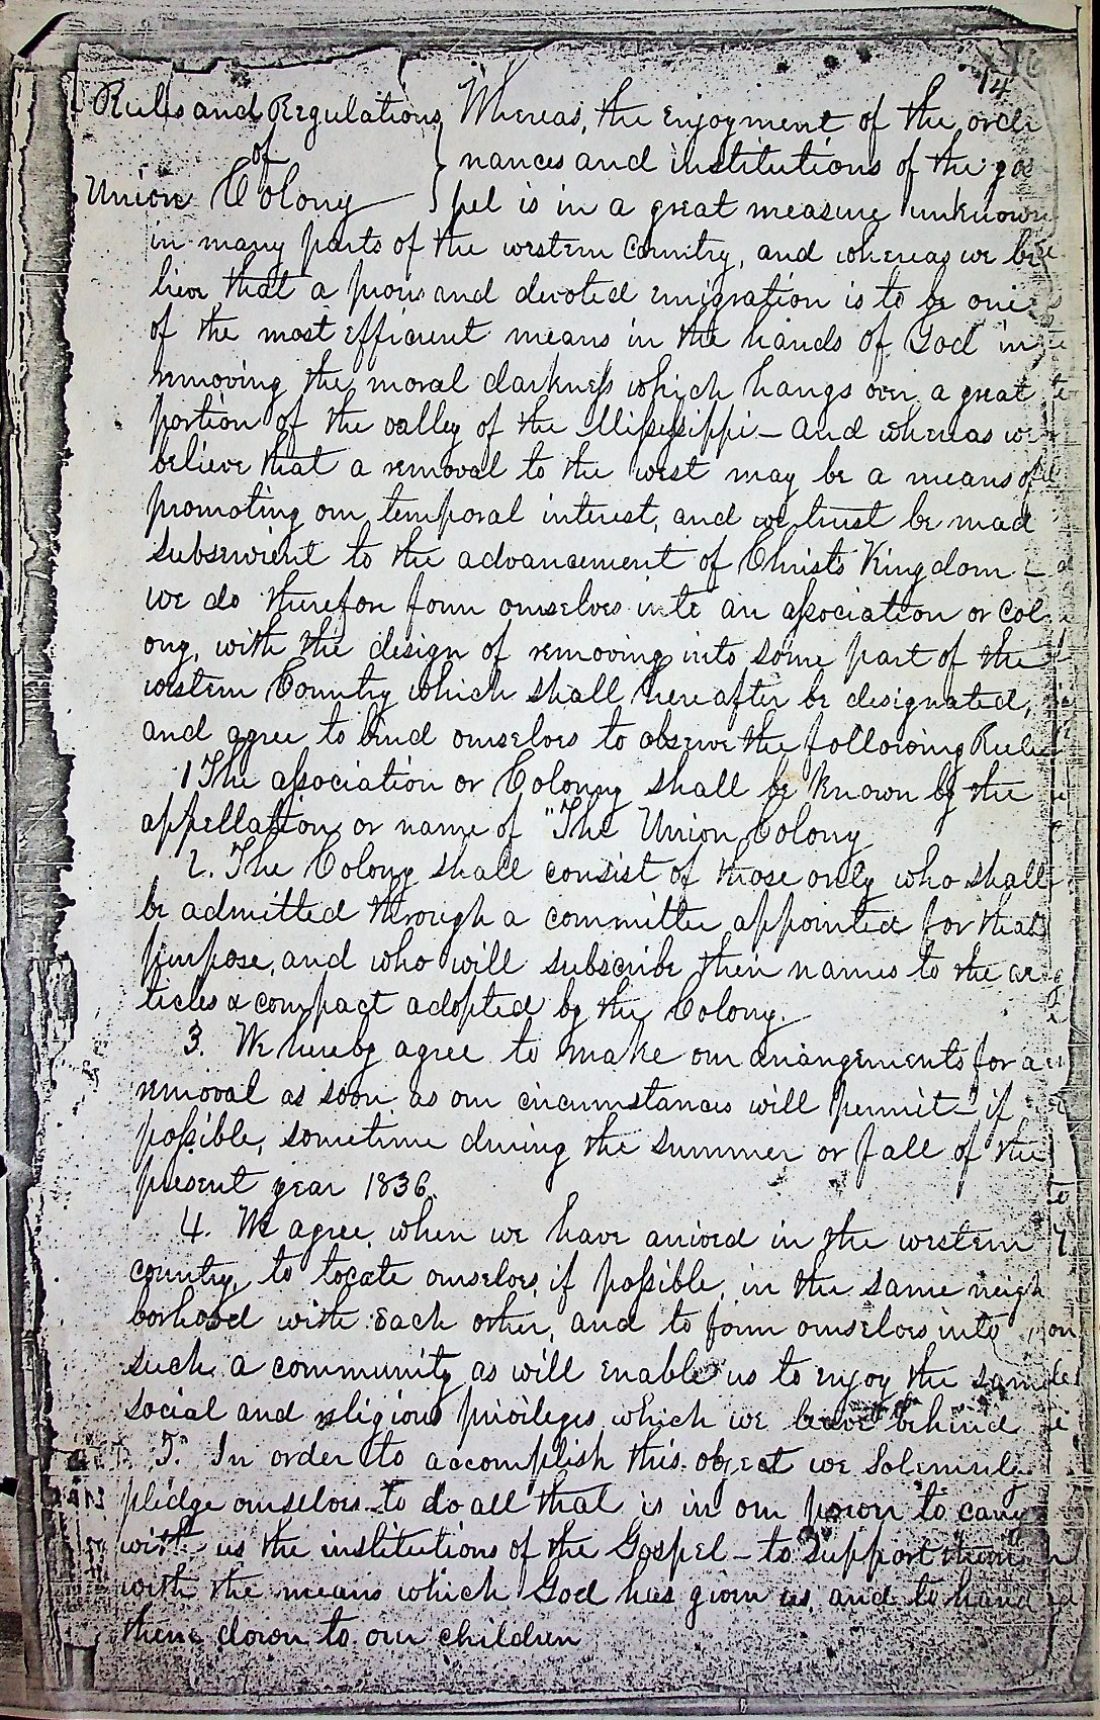 14
Rules and Regulations
of
Union Colony
Whereas, the enjoyment of the ordi
nances and institutions of the gos
pel is in a great measure unknown
in many parts of the western Country, and whereas we be
lieve that a pious and devoted emigration is to be one
of the most efficient means in the hands of God in
removing the moral darkness which hangs over a great
portion of the valley of the Mississippi - and whereas we
believe that a removal to the west may be a means of
promoting our temporal interest, and we trust be mad
subservient to the advancement of Christs Kingdom -
we do therefore form ourselves into an association or Col
ony, with the design of removing into some part of the
western Country which shall hereafter be designated,
and agree to bind ourselves to observe the following Rules
1 The association or Colony shall be known by the
appellation or name of "The Union Colony
2. The Colony shall consist of those only who shall
be admitted through a committee appointed for that
purpose, and who will subscribe their names to the ar
ticles & compact adopted by the Colony.
3. We hereby agree to make our arrangements for a
removal as soon as our circumstances will permit - if
possible, sometime during the summer or fall of the
present year 1836.
4. We agree, when we have arrived in the western
country, to locate ourselves, if possible, in the same neigh
borhood with each other, and to form ourselves into
such a community as will enable us to enjoy the same
social and religious privileges which we leave behind
5. In order to accomplish this object we Solemnly
pledge ourselves to do all that is in our power to carry
with us the institutions of the Gospel - to support them
with the means which God has given us, and to hand
them down to our children